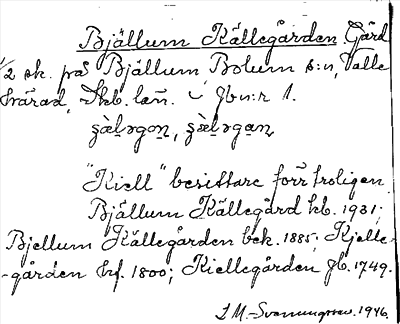 Bjällum Källegården Gård
1/2 sk. på Bjällum Bolum s:n, Valle
härad, Skb. län. Jb n:r 1.
"Kiell" besittare förr troligen
Bjällum Källegård kb. 1931;
Bjellum Källegården bek. 1885; Kjelle-
-gården Hf. 1800; Kiellegården Jb. 1749.
1946.